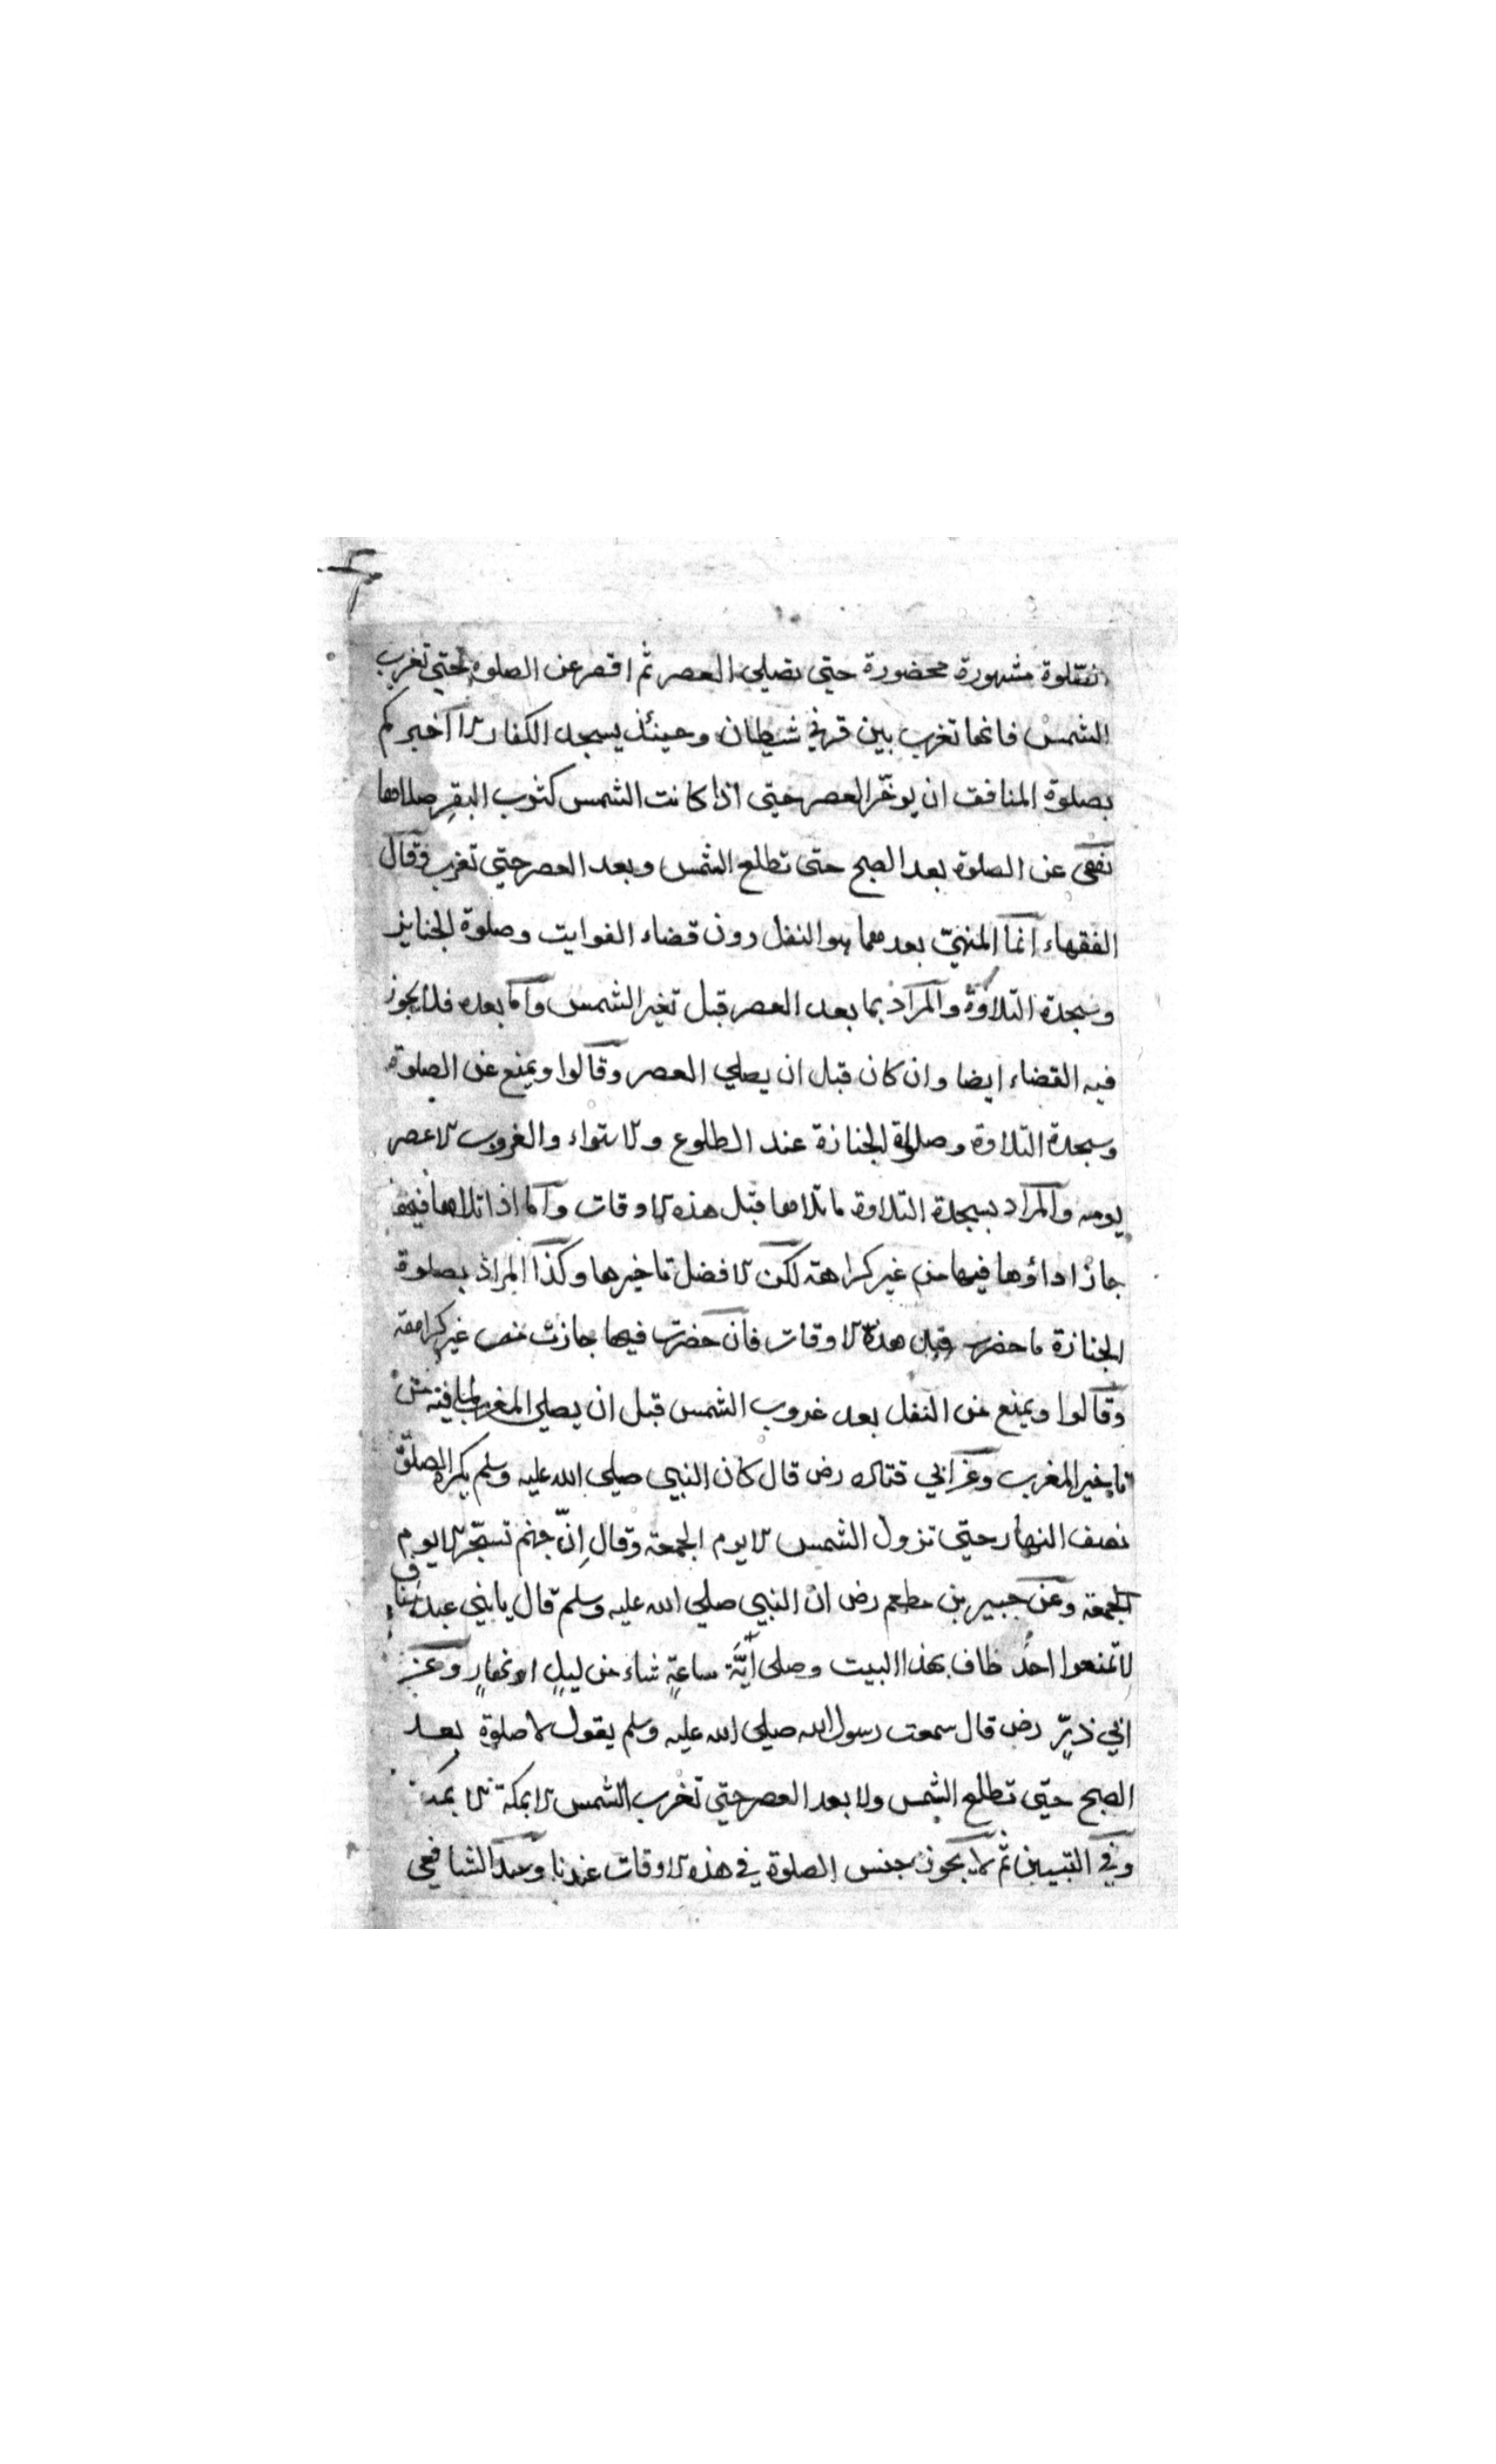 الصلوة مشهودة محضورة حتى تصلي العصر ثم اقصر عن الصلوة حتى تغرب
الشمس فانها تغرب بين قرني شيطان وحينئذ يسجد الكفار الا اخبركم
بصلوة المنافق ان يؤخّر العصر حتى اذا كانت الشمس كثوب البقر صلاها
نهى عن الصلوة بعد الصبح حتى تطلع الشمس وبعد العصر حتى تغرب وقال
الفقهاء انما المنهيّ بعدهما هو النفل دون قضاء الفوايت وصلوة الجنايز
وسجدة التلاوة والمراد بما بعد العصر قبل تغير الشمس واما بعده فلا يجوز
فيه القضاء ايضا وان كان قبل ان يصلي العصر وقالوا ويمنع عن الصلوة
وسجدة التلاوة وصلوة الجنازة عند الطلوع والاستواء والغروب الا عصر
يومه والمراد بسجدة التلاوة ما تلاها قبل هذه الاوقات واما اذا تلاها فيها
جاز اداؤها فيها من غير كراهة لكن الافضل تاخيرها وكذا المراد بصلوة
الجنازة ما حضرت قبل هذه الاوقات فان حضرت فيها جازت من غير كراهة
وقالوا ويمنع عن النفل بعد غروب الشمس قبل ان يصلي المغرب لما فيه من
تاخير المغرب وعن ابي قتاده رض قال كان النبي صلى الله عليه وسلم يكره الصلوة
نصف النهار حتى تزول الشمس الا يوم الجمعة وقال اِنّ جهنم تسجّر الا يوم
الجمعة وعن جبير بن مطعم رض ان النبي صلى الله عليه وسلم قال يا بني عبد مناف
لا تمنعوا احدً طاف بهذا البيت وصلى أيَّة ساعةٍ شاء من ليلٍ او نهارٍ وعن
ابي ذرٍّ رض قال سمعت رسول الله صلى الله عليه وسلم يقول لا صلوة بعد
الصبح حتى تطلع الشمس ولا بعد العصر حتى تغرب الشمس الا بمكة الا بمكة
وفي التبيين ثم لا يجوز جنس الصلوة في هذه الاوقات عندنا وعند الشافعي